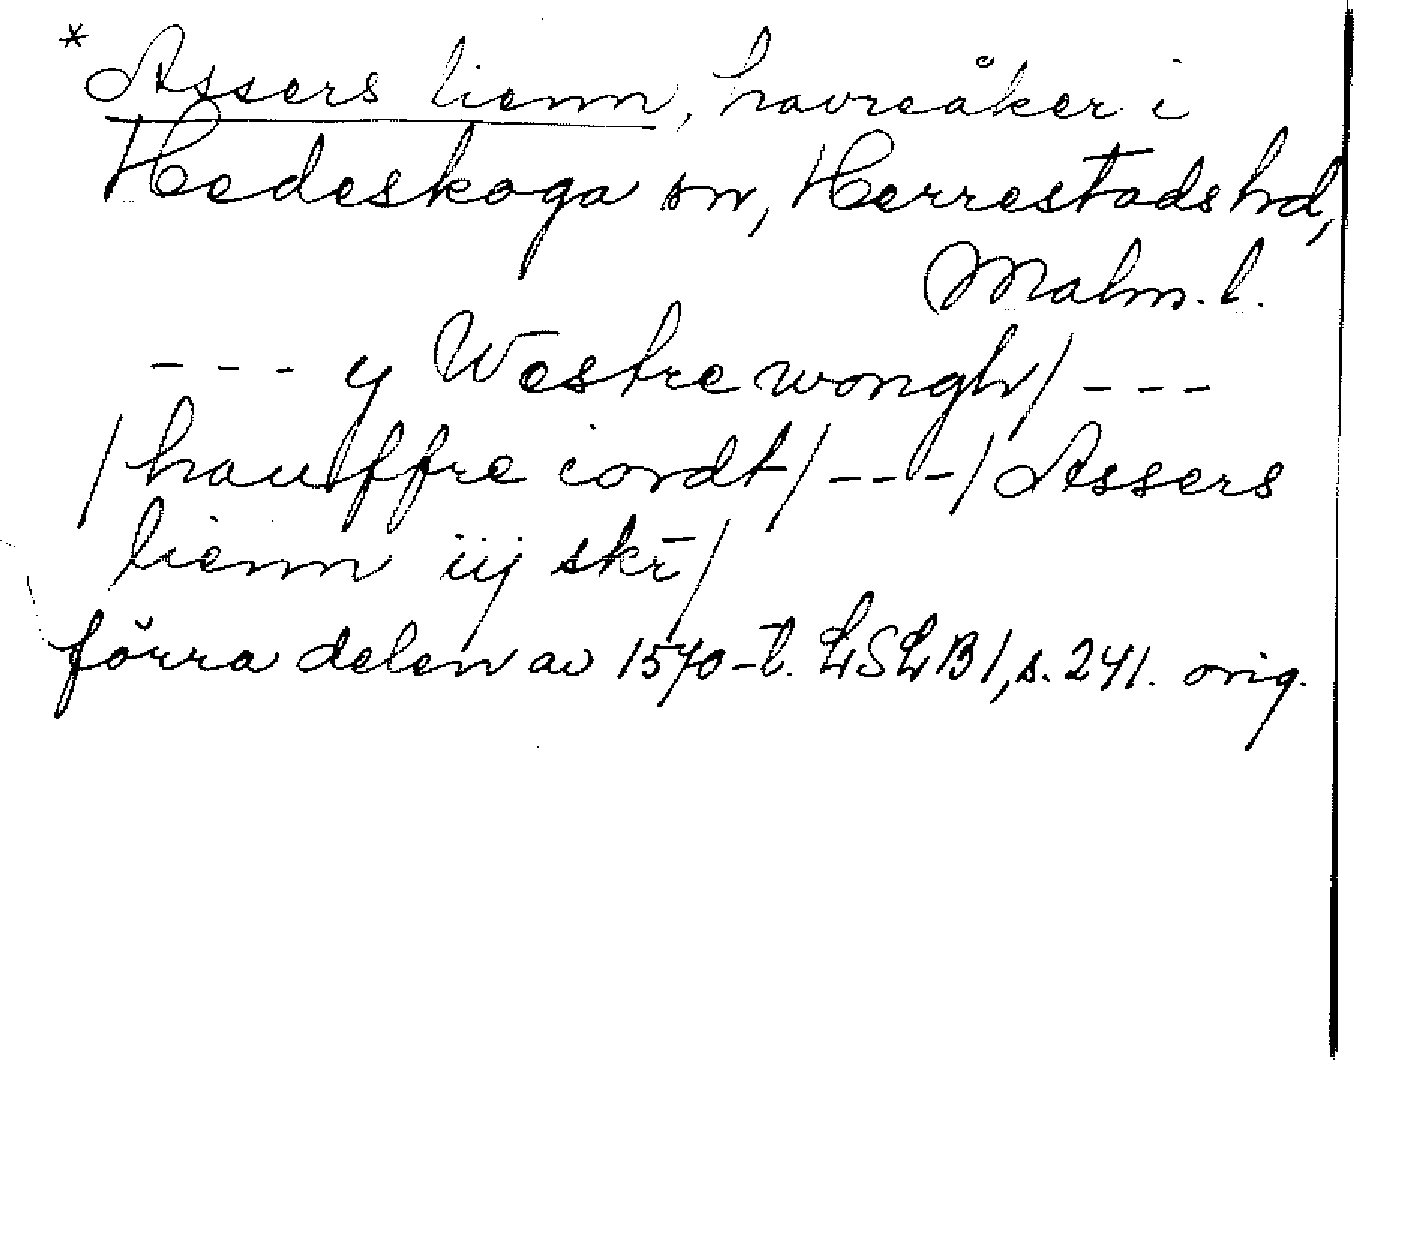 * Assers lienn, havreåker i
Hedeskoga sn, Herrestads hd,
Malm. l.
--- y Westre wongh/ ---
/hauffre iordt/ ---/ Assers
lienn iij skr̄/
förra delen av 1570-t. LSLB1, s. 241. orig.